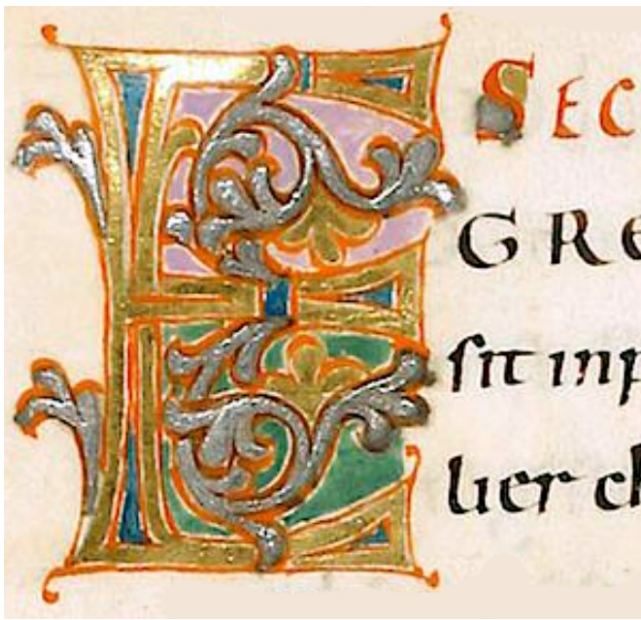 E SEC
GRE
sit inp
lier ch